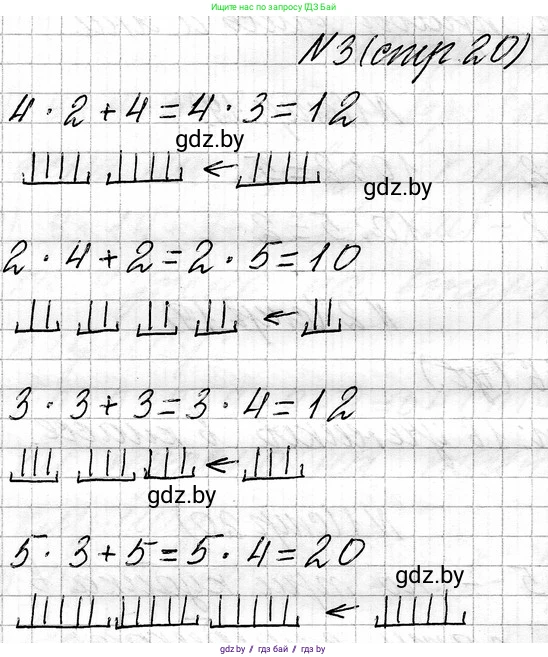 Ищите нас по запросу ГДЗ Бай
N3 (стр 20)
4 · 2 + 4 = 4 · 3 = 12
gdz.by
gdz.by
2 · 4 + 2 = 2 · 5 = 10
3 · 3 + 3 = 3 · 4 = 12
gdz.by
5 · 3 + 5 = 5 · 4 = 20
gdz.by
gdz.by // гдз бай // gdz.by